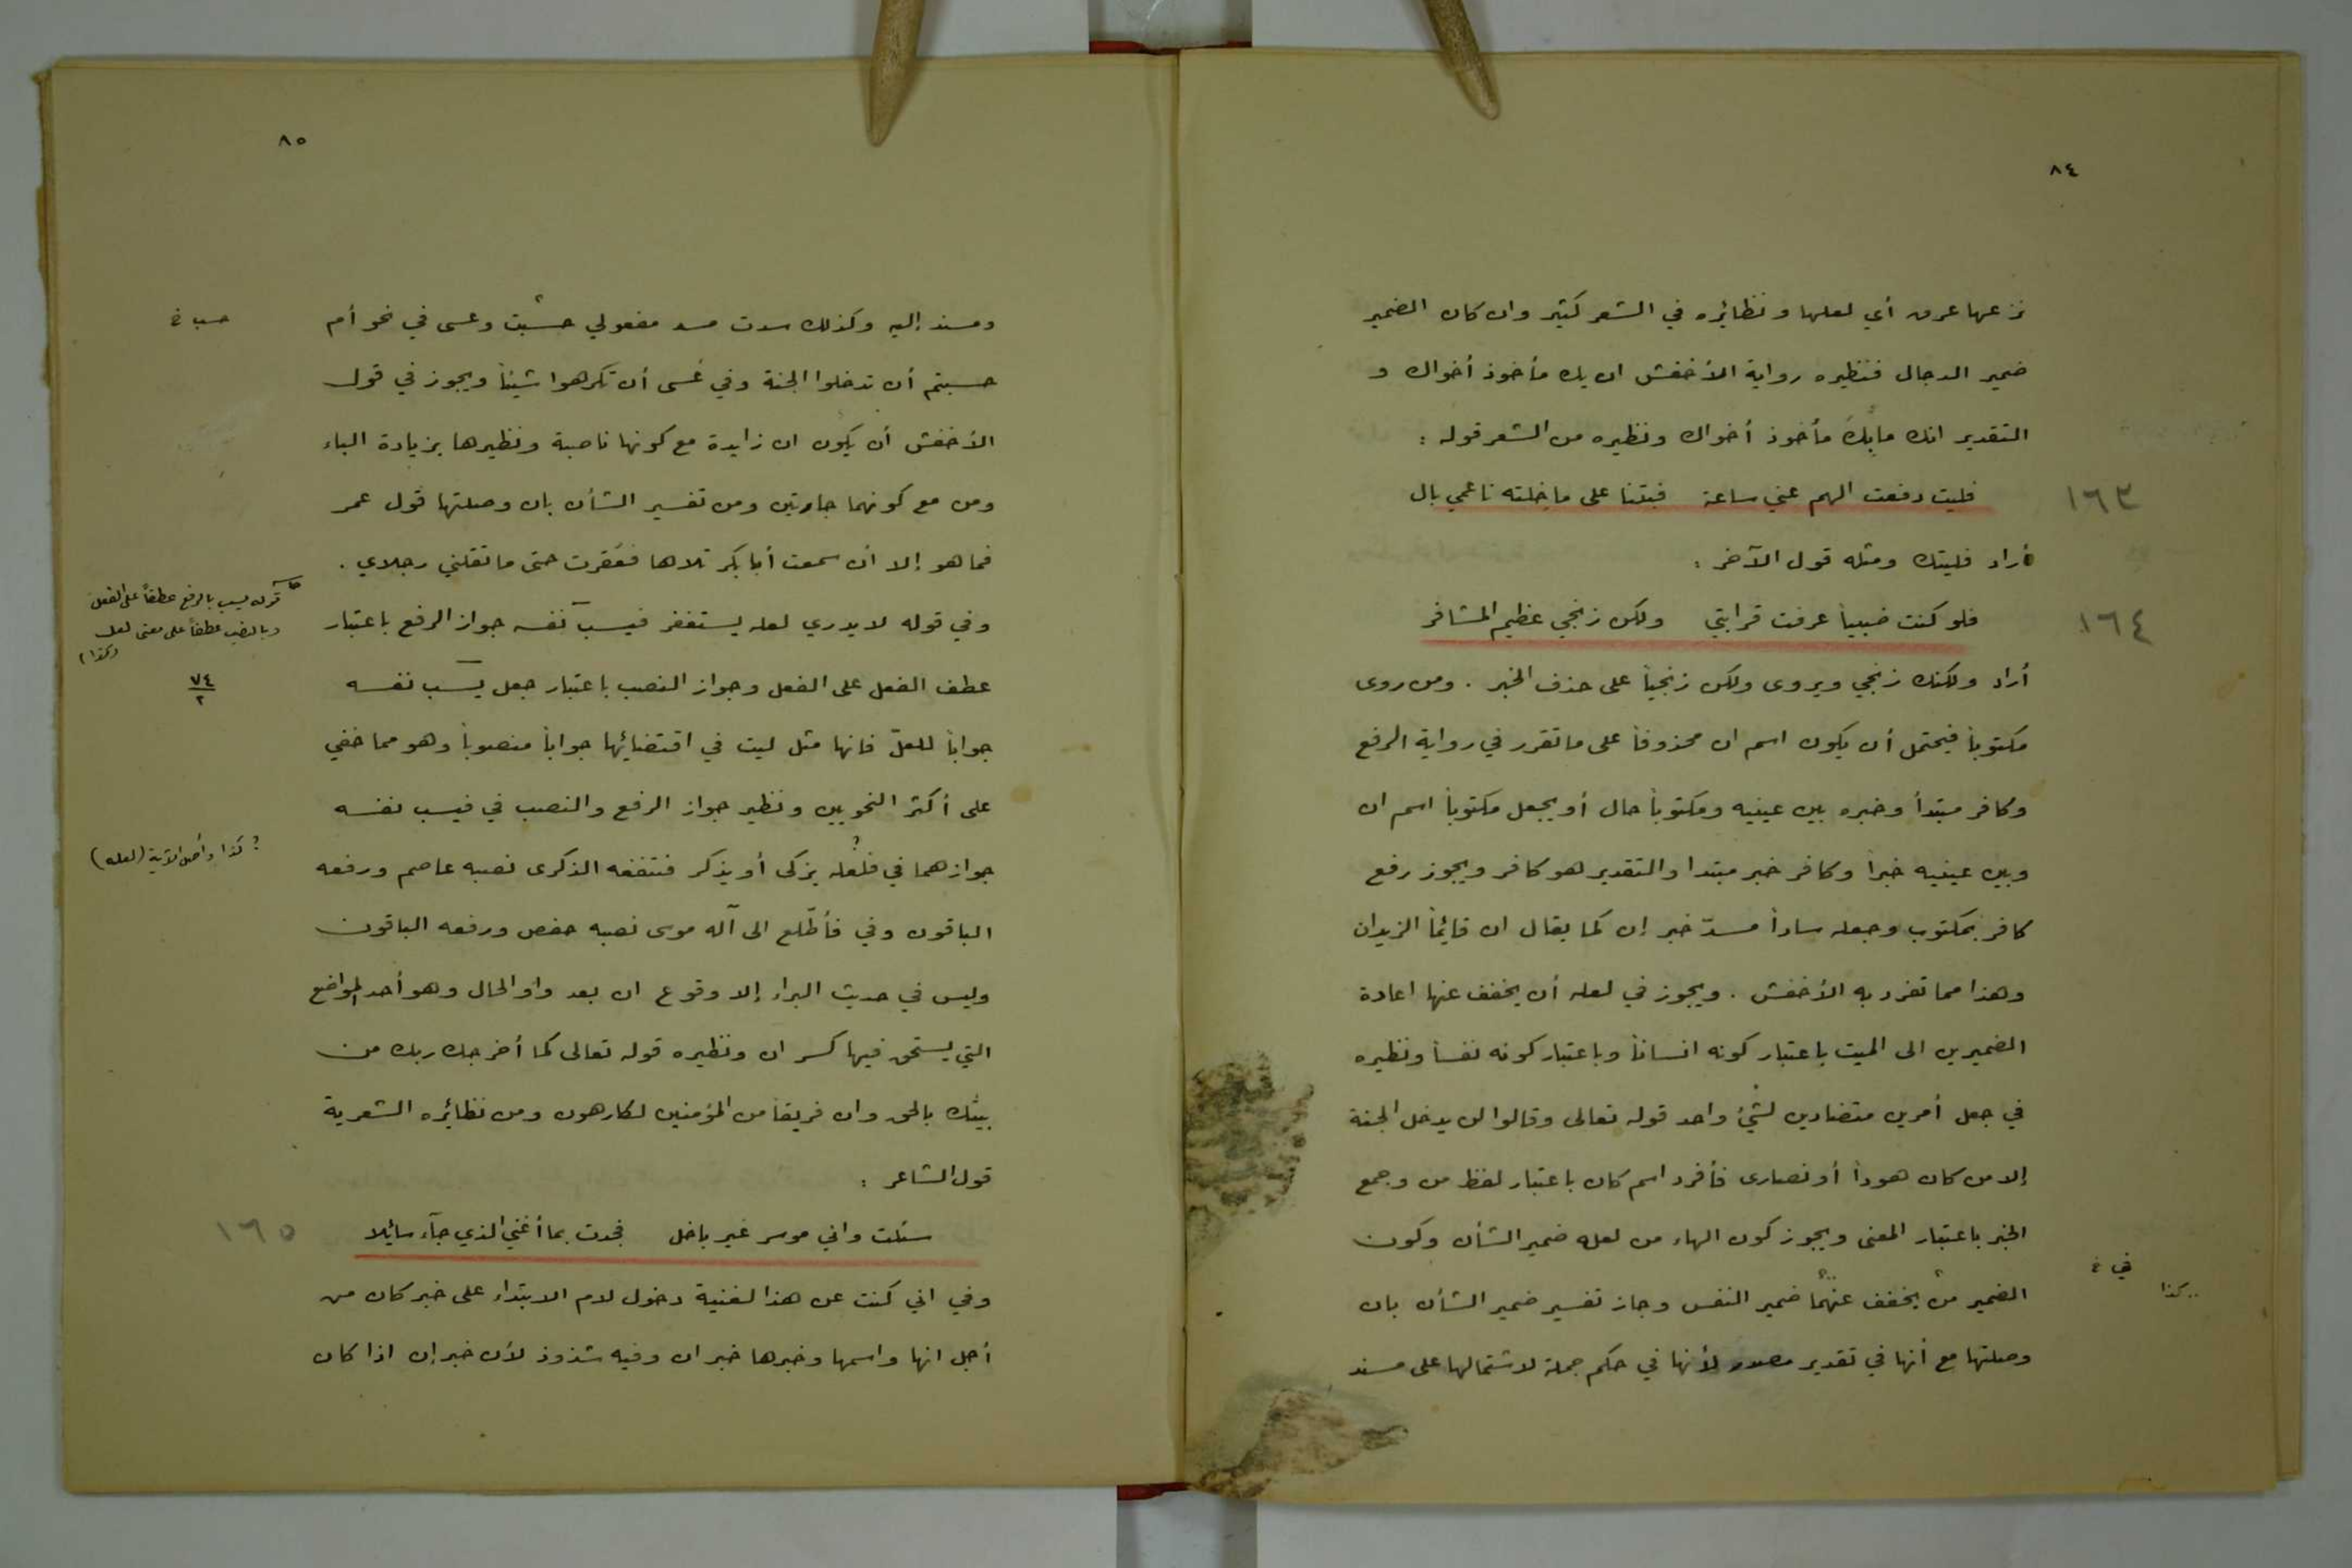 ٨٤
نزعها عرق أي لعلها ونظائره في الشعر كثير وان كان الضمير
ضمير الدجال فنظيره رواية الأخفش ان بك مأخوذ أخواك و
التقدير انك مابِكَ مأخوذ أخواك ونظيره من الشعر قوله :
١٦٣ فليت دفعت الهم عني ساعة فبتنا على ما خِلته ناعمي بال
أراد فليتك ومثله قول الآخر :
١٦٤ فلو كنت ضبياً عرفت قرابتي ولكن زنجي عظيم المشافر
أراد ولكنك زنجي ويروى ولكن زنجياً على حذف الخبر . ومن روى
مكتوباً فيحتمل أن يكون اسم ان محذوفاً على ما تقرر في رواية الرفع
وكافر مبتدأ وخبره بين عينيه ومكتوباً حال أو يجعل مكتوباً اسم ان
وبين عينيه خبراً وكافر خبر مبتدا والتقدير هو كافر ويجوز رفع
كافر بمكتوب وجعله ساداً مسدّ خبر إن كما يقال ان قايُماً الزيدان
وهذا مما تفرد به الأخفش . ويجوز في لعله أن يخفف عنها اعادة
الضميرين الى الميت باعتبار كونه انساناً وباعتبار كونه نفساً ونظيره
في جعل أمرين متضادين لشيُ واحد قوله تعالى وقالوا لن يدخل الجنة
إلا من كان هوداً أو نصارى فأفرد اسم كان باعتبار لفظ من وجمع
الخبر باعتبار المعنى ويجوز كون الهاء من لعله ضمير الشأن وكون
الضمير من يخفف عنهما ضمير النفس وجاز تفسير ضمير الشأن بان
في خ
كذا
وصلتها مع أنها في تقدير مصدر لأنها في حكم جملة لاشتمالها على مسند
٨٥
ومسند إليه وكذلك سدت مسد مفعولي حسبت وعسى في نحو أم
حسب خ
حسبتم أن تدخلوا الجنة وفي عَسى أن تكرهوا شيئاً ويجوز في قول
الأخفش أن يكون ان زايدة مع كونها ناصبة ونظيرها بزيادة الباء
ومن مع كونهما جارتين ومن تفسير الشأن بان وصلتها قول عمر
فما هو إلا أن سمعت أبا بكر تلاها فعَقرت حتى ما تقلني رجلاي .
وفي قوله لا يدري لعله يستغفر فيسب نفسه جواز الرفع باعتبار
قوله يسب بالرفع عطفاً على الفعل
وبالنصب عطفاً على معنى لعل
(كذا)
عطف الفعل على الفعل وجواز النصب باعتبار جعل يسب نفسه
٧٤
٢
جواباً للعلّ فانها مثل ليت في اقتضائها جواباً منصوباً وهو مما خفي
على أكثر النحويين ونظير جواز الرفع والنصب في فيسب نفسه
جوازهما في فلعله يزكى أو يذكر فتنفعه الذكرى نصبه عاصم ورفعه
؟ كذا وأصل الآية (لعله)
الباقون وفي فأطّلع الى آله موسى نصبه حفص ورفعه الباقون
وليس في حديث البراء إلا وقوع ان بعد واو الحال وهو أحد المواضع
التي يستحق فيها كسر ان ونظيره قوله تعالى كما أخرجك ربك من
بيتك بالحق وان فريقاً من المؤمنين لكارهون ومن نظائره الشعرية
قول الشاعر :
١٦٥ سئلت واني موسر غير باخل فجدت بما أغني الذي جآء سائلا
وفي اني كنت عن هذا لغنية دخول لام الابتداء على خبر كان من
أجل انها واسمها وخبرها خبر ان وفيه شذوذ لأن خبر إن اذا كان